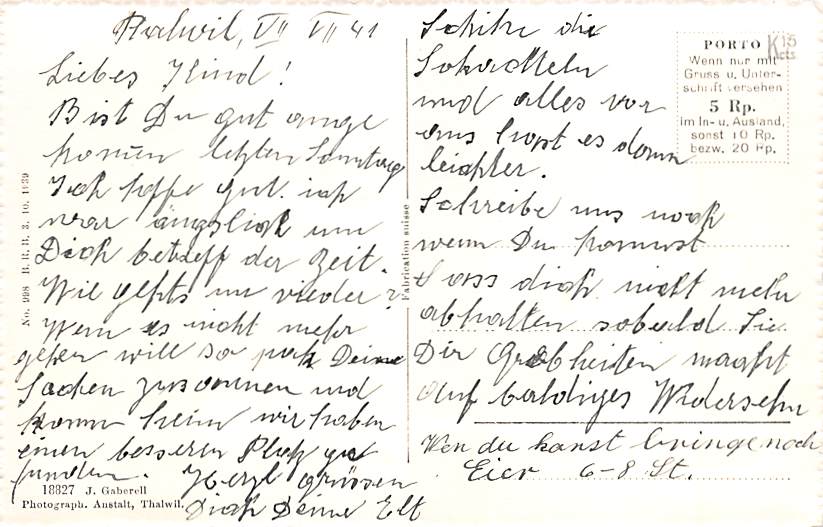 Thalwil, VII VII 41
Liebes Kind!
Bist Du gut ange
komen letzten Sonntag
Ich hoffe gut. ich
war ängslich um
Dich betreff der Zeit.
Wie gehts im wieder?
Wenn es nicht mehr
gehen will so pak Deine
Sachen zusammen und
komm heim wir haben
einen besseren Platz ge
funden. Herzl Grüssen
Dich Deine Elt
18827 J. Gaberell
Photograph. Anstalt, Thalwil.
No. 998 B.R.B. 3. 10. 1939
Fabrication suisse
Schike die
Schachteln
und alles vor
aus hopt es dann
leichter.
Schreibe uns noch
wenn Du kommst
Lass dich nicht mehr
abhalten sobald Sie
Dir Grobheiten macht
auf baldiges Widersehn
Wen du kanst bringe noch
Eier 6-8 St.
PORTO
Wenn nur mit
Gruss u. Unter-
schrift versehen
5 Rp.
im In- u. Ausland,
sonst 10 Rp.
bezw. 20 Rp.
K 15